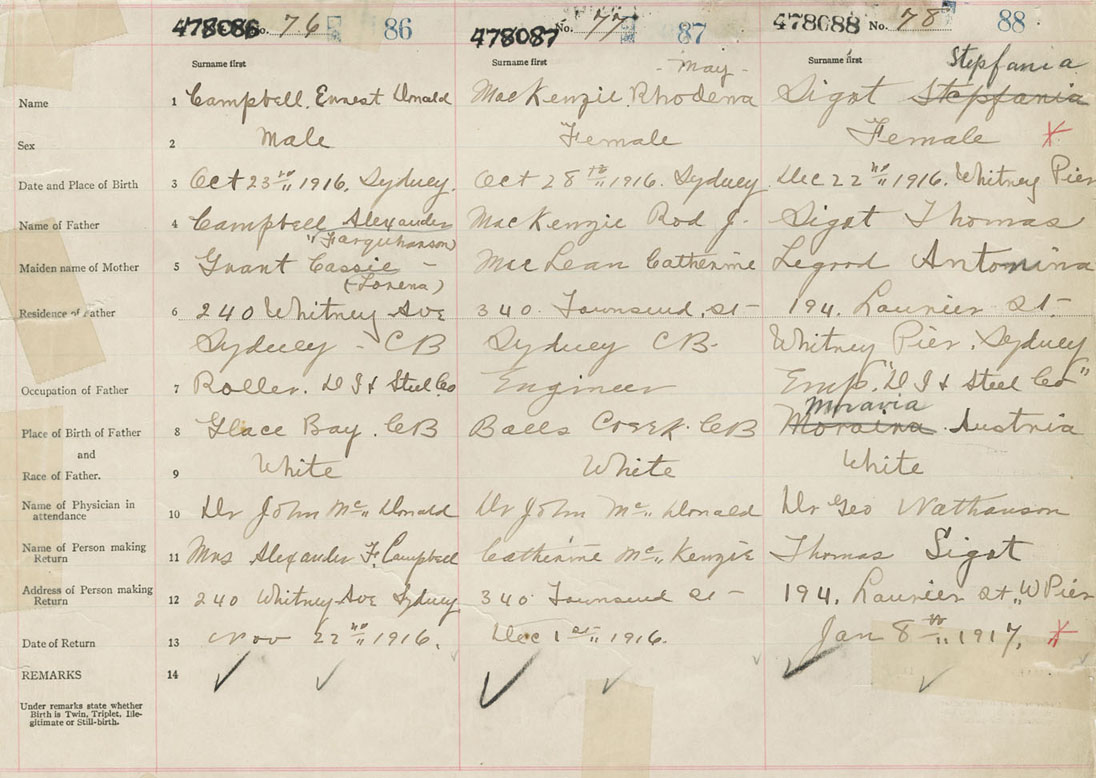 478086 No. 76 86 478087 No. 77 87 478088 No. 78 88
Surname first Surname first Surname first
- May - Stepfania
Name 1 Campbell, Ernest Donald MacKenzie, Rhodena Sigot Stepfania
Sex 2 Male Female Female X
Date and Place of Birth 3 Oct 23rd 1916. Sydney. Oct 28th 1916. Sydney Dec 22nd 1916. Whitney Pier
Name of Father 4 Campbell Alexander MacKenzie Rod J. Sigot Thomas
"Farquharson
Maiden name of Mother 5 Grant Cassie - MacLean Catherine Legood Antonina
(Lorena)
Residence of Father 6 240 Whitney Ave 340. Townsend, St- 194. Laurier St-
Sydney - CB Sydney CB- Whitney Pier. Sydney
Occupation of Father 7 Roller. D I & Steel Co Engineer Emp. "D I & Steel Co"
Moravia
Place of Birth of Father 8 Glace Bay. CB Balls Creek. CB Moraina Austria
and
Race of Father. 9 White White White
Name of Physician in attendance 10 Dr John Mc" Donald Dr John Mc" Donald Dr Geo Nathanson
Name of Person making Return 11 Mrs Alexander F. Campbell Catherine Mc" Kenzie Thomas Sigot
Address of Person making Return 12 240 Whitney Ave Sydney 340 Townsend St- 194. Laurier St "W Pier
Date of Return 13 Nov 22nd 1916. Dec 1st 1916. Jan 8th 1917. X
REMARKS 14
Under remarks state whether
Birth is Twin, Triplet, Ille-
gitimate or Still-birth.